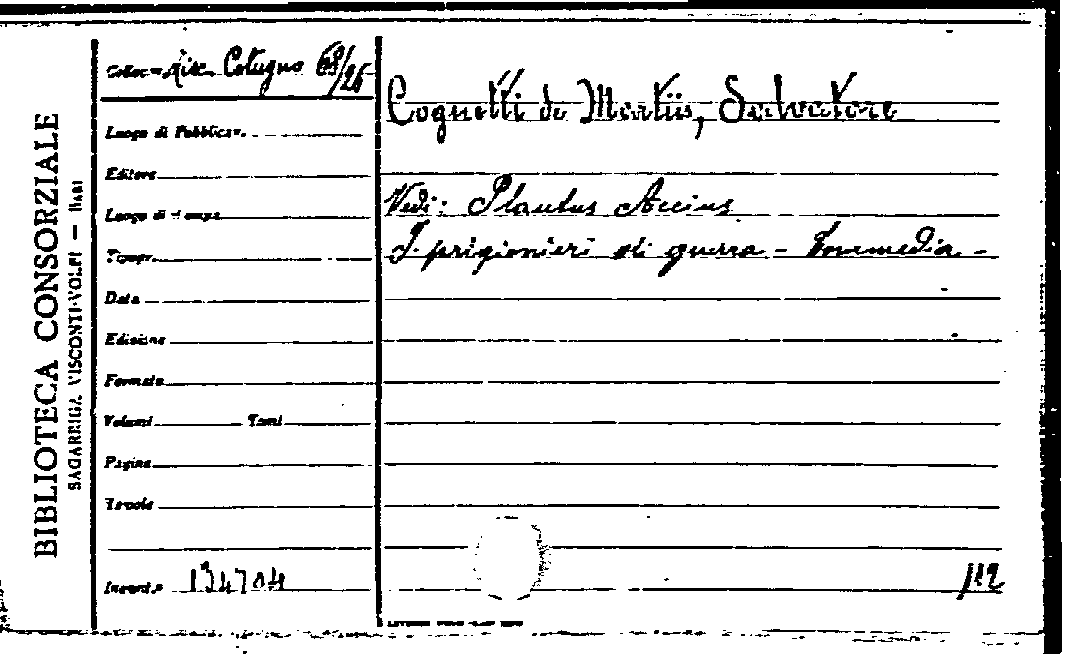 BIBLIOTECA CONSORZIALE
SAGARRIGA VISCONTI-VOLPI — BARI
Colloc. Misc. Cotugno 68/26
Luogo di Pubblicaz.
Editore
Luogo di stampa
Tipogr.
Data
Edizione
Formato
Volumi Tomi
Pagine
Tavole
Invent. 134704
Cognetti de Martiis, Salvatore
Vedi: Plautus Accius
I prigionieri di guerra - Commedia -
112